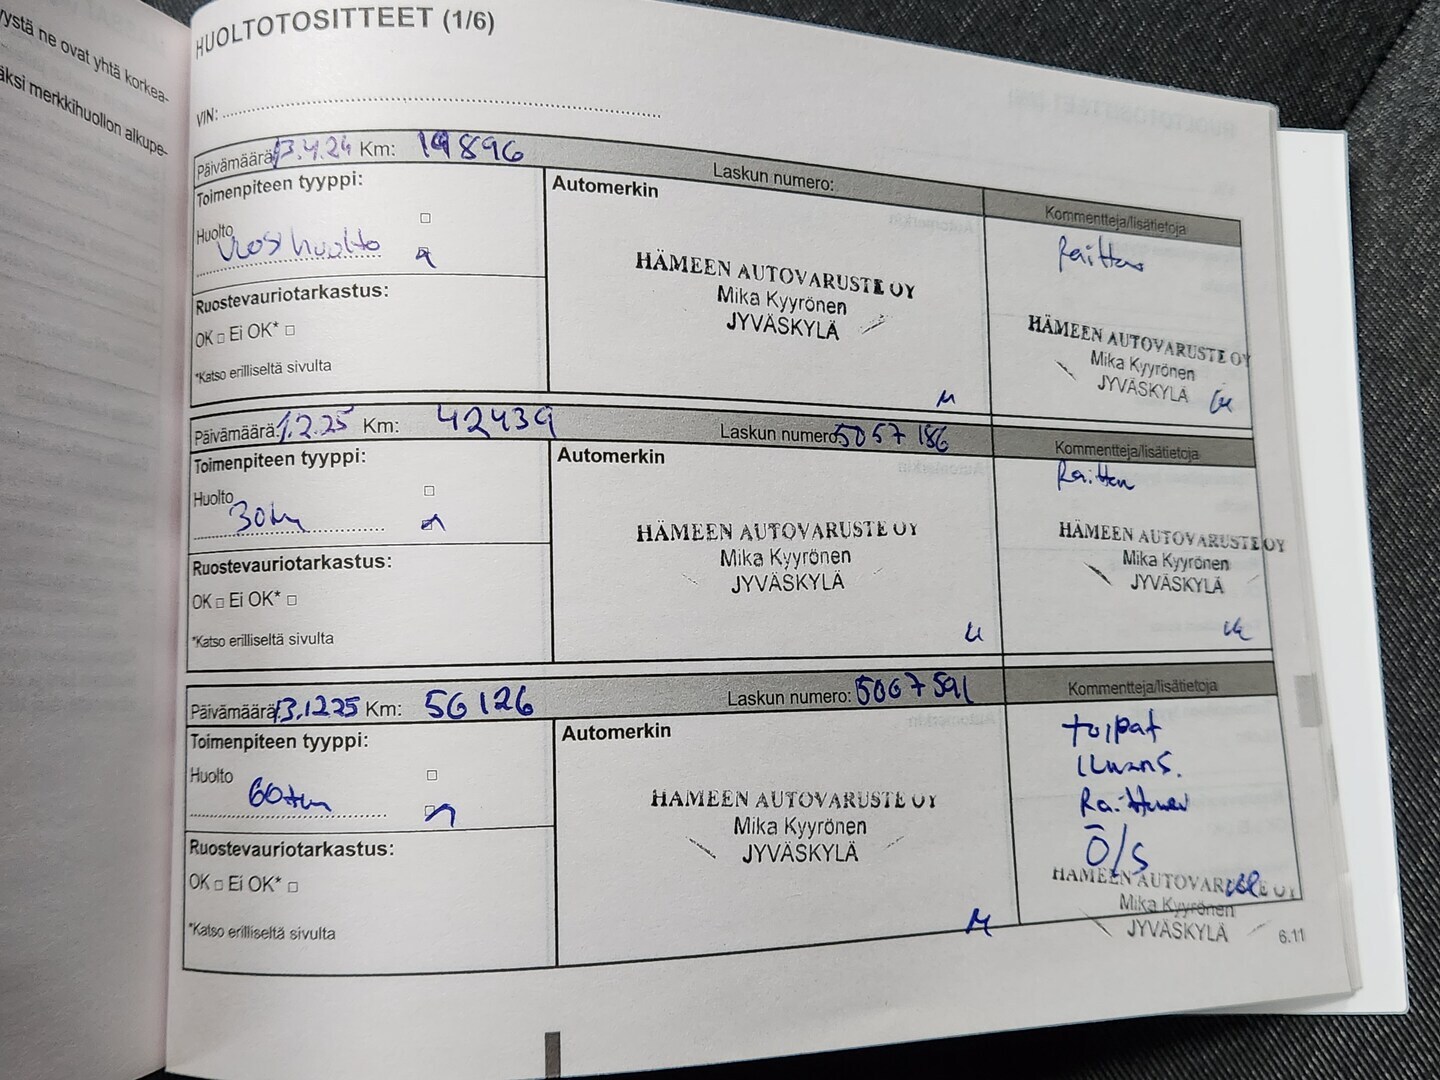 ystä ne ovat yhtä korkea-
äksi merkkihuollon alkupe-
HUOLTOTOSITTEET (1/6)
VIN:
Päivämäärä: 13.4.24 Km: 19896
Laskun numero:
Kommentteja/lisätietoja
Toimenpiteen tyyppi:
Huolto
Vuosihuolto
Ruostevauriotarkastus:
OK □ Ei OK* □
*Katso erilliseltä sivulta
Automerkin
HÄMEEN AUTOVARUSTE OY
Mika Kyyrönen
JYVÄSKYLÄ
Raitton
HÄMEEN AUTOVARUSTE OY
Mika Kyyrönen
JYVÄSKYLÄ
Päivämäärä: 1.2.25 Km: 42439
Laskun numero: 5057186
Kommentteja/lisätietoja
Toimenpiteen tyyppi:
Huolto
30tkm
Ruostevauriotarkastus:
OK □ Ei OK* □
*Katso erilliseltä sivulta
Automerkin
HÄMEEN AUTOVARUSTE OY
Mika Kyyrönen
JYVÄSKYLÄ
Raitton
HÄMEEN AUTOVARUSTE OY
Mika Kyyrönen
JYVÄSKYLÄ
Päivämäärä: 13.1225 Km: 56126
Laskun numero: 5067591
Kommentteja/lisätietoja
Toimenpiteen tyyppi:
Huolto
60tkm
Ruostevauriotarkastus:
OK □ Ei OK* □
*Katso erilliseltä sivulta
Automerkin
HÄMEEN AUTOVARUSTE OY
Mika Kyyrönen
JYVÄSKYLÄ
tulpat
ilmans.
Ö/S
HÄMEEN AUTOVARUSTE OY
Mika Kyyrönen
JYVÄSKYLÄ
6.11